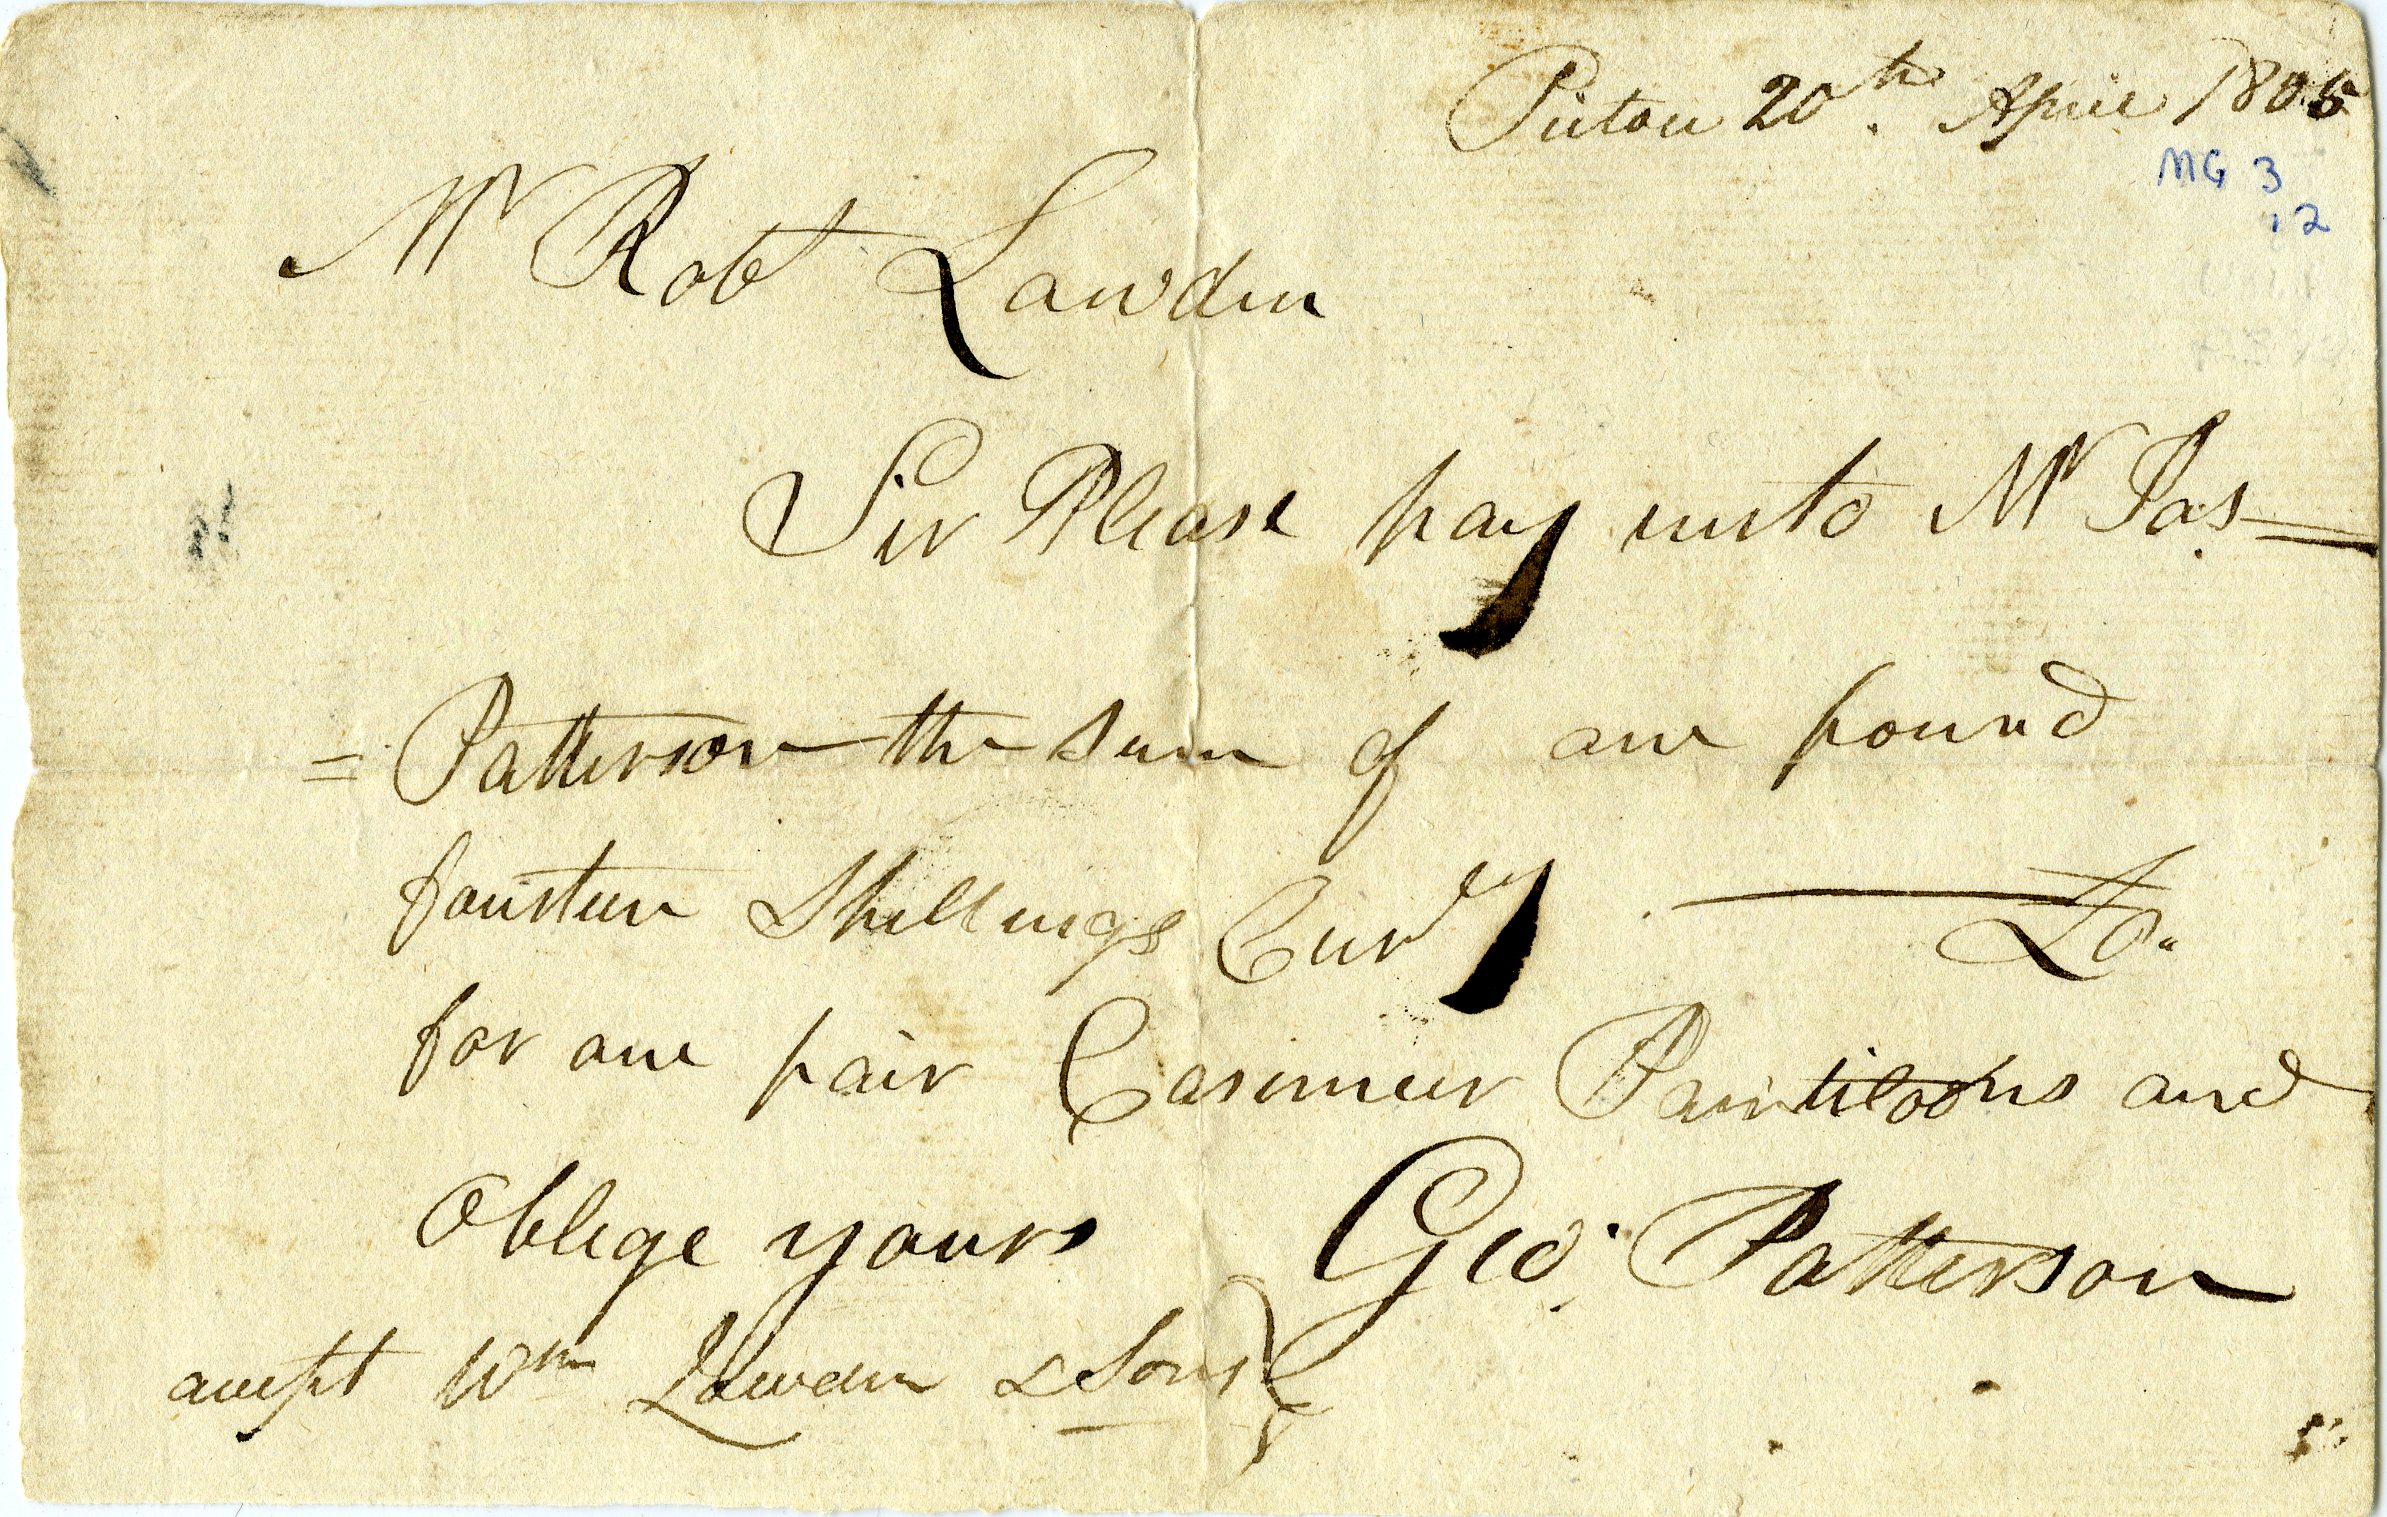 Pictou 20th. April 1805
MG 3
.2
Mr Robt Lawden
Sir Please pay unto Mr Jas
= Patterson the Sum of one pound
fourteen Shillings Curry
for one pair Casimeer Pantiloons and
Oblige yours Geo. Patterson
accept Wm Lowden & Sons